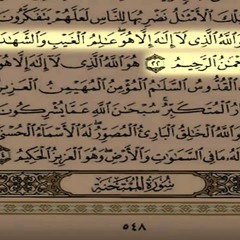 ـلْكَ ٱلْأَمْثَٰلُ نَضْرِبُهَا لِلنَّاسِ لَعَلَّهُمْ يَتَفَكَّرُونَ
ٱللَّهُ ٱلَّذِى لَآ إِلَٰهَ إِلَّا هُوَ عَٰلِمُ ٱلْغَيْبِ وَٱلشَّهَٰدَ
ـحْمَٰنُ ٱلرَّحِيمُ ٢٢ هُوَ ٱللَّهُ ٱلَّذِى لَآ إِلَٰهَ إِلَّا هُوَ
ٱلْقُدُّوسُ ٱلسَّلَٰمُ ٱلْمُؤْمِنُ ٱلْمُهَيْمِنُ ٱلْعَزِيزُ
ٱلْمُتَكَبِّرُ سُبْحَٰنَ ٱللَّهِ عَمَّا يُشْرِكُونَ
ٱللَّهُ ٱلْخَٰلِقُ ٱلْبَارِئُ ٱلْمُصَوِّرُ لَهُ ٱلْأَسْمَآءُ ٱلْحُسْنَىٰ
لَهُۥ مَا فِى ٱلسَّمَٰوَٰتِ وَٱلْأَرْضِ وَهُوَ ٱلْعَزِيزُ ٱلْحَكِيمُ
سُورَةُ ٱلْمُمْتَحَنَةِ
٥٤٨